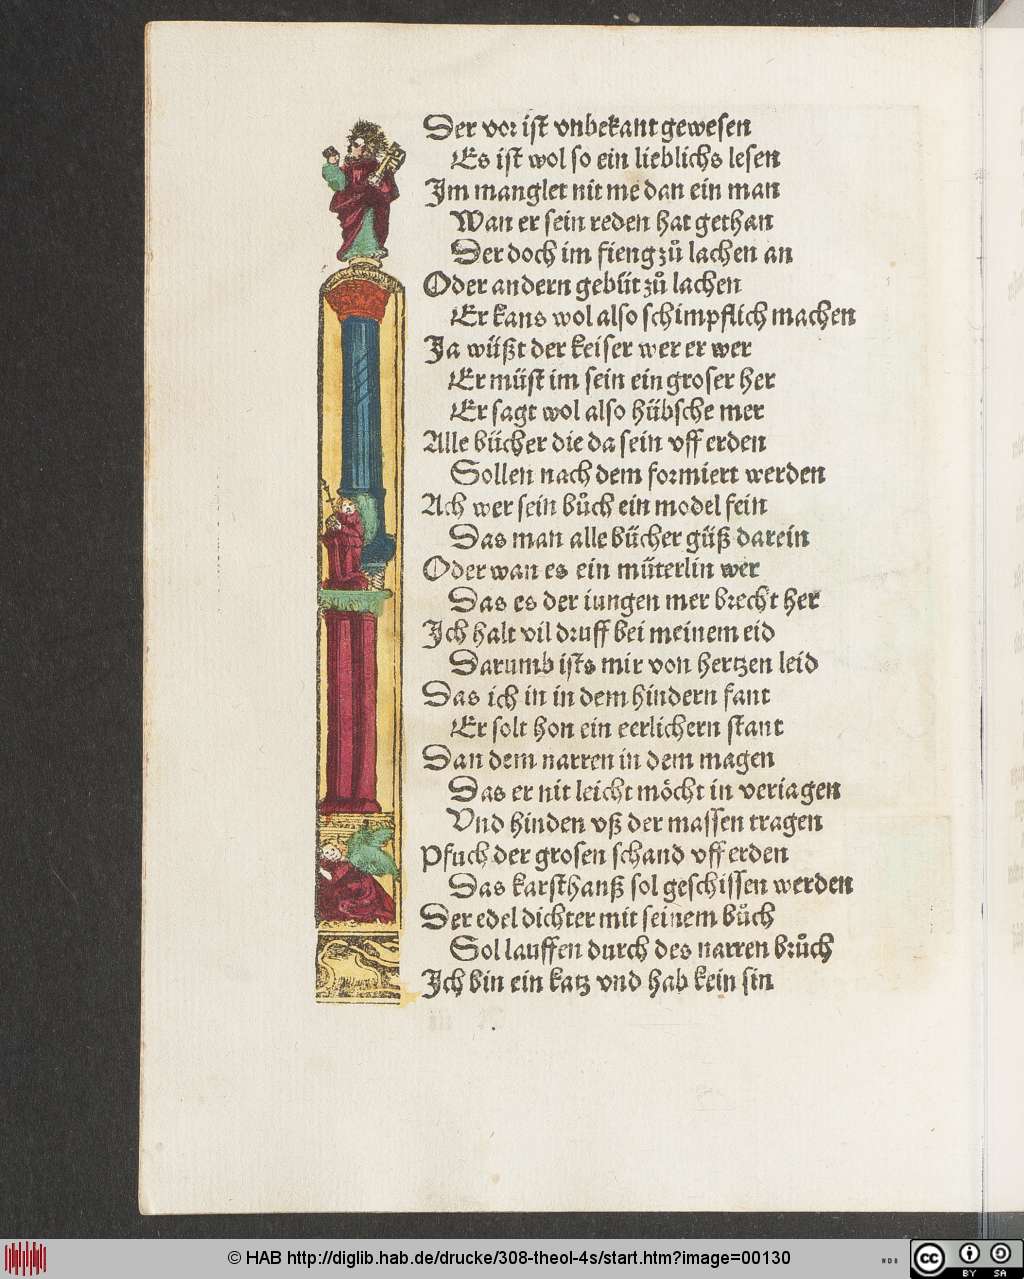 Der vor ist vnbekant gewesen
Es ist wol so ein lieblichs lesen
Im manglet nit me dan ein man
Wan er sein reden hat gethan
Der doch im fieng zů lachen an
Oder andern gebüt zů lachen
Er kans wol also schimpflich machen
Ja wüßt der keiser wer er wer
Er müst im sein ein groser her
Er sagt wol also hübsche mer
Alle bücher die da sein vff erden
Sollen nach dem formiert werden
Ach wer sein bůch ein model fein
Das man alle bücher güß darein
Oder wan es ein müterlin wer
Das es der iungen mer brecht her
Ich halt vil druff bei meinem eid
Darumb ists mir von hertzen leid
Das ich in in dem hindern fant
Er solt hon ein eerlichern stant
Dan dem narren in dem magen
Das er nit leicht möcht in veriagen
Vnd hinden vß der massen tragen
Pfuch der grosen schand vff erden
Das karsthanß sol geschissen werden
Der edel dichter mit seinem bůch
Sol lauffen durch des narren brůch
Ich bin ein katz vnd hab kein sin
© HAB http://diglib.hab.de/drucke/308-theol-4s/start.htm?image=00130
WDB
CC BY SA